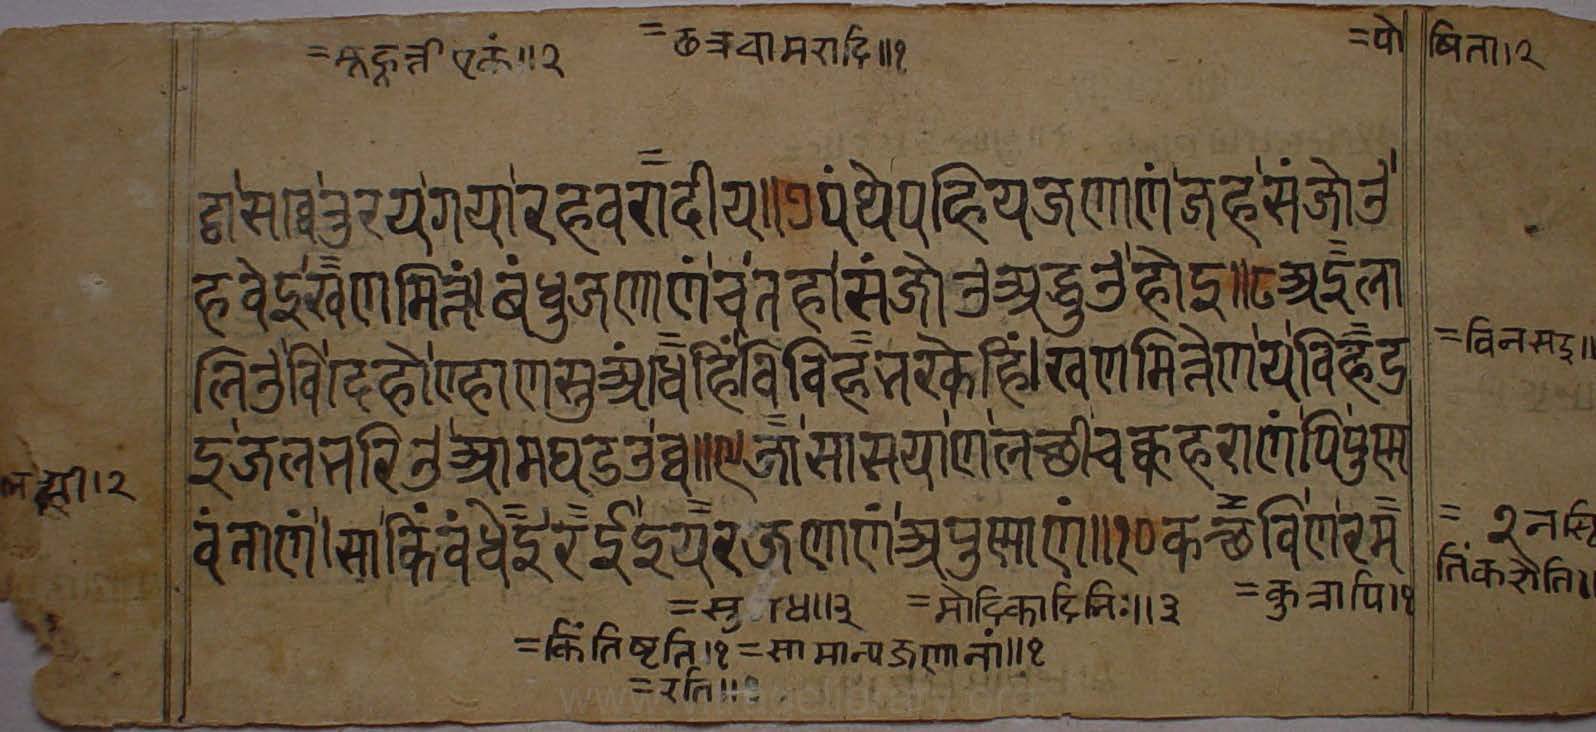 =छत्रचामरादि॥१
=पोषिता।२
ट्ठा सा व्व तुरयगया रहवरादीय॥७ पंथे पहियजणाणं जह संजोउ
हवेइ खणमित्तं। बंधुजणाणं च तहा संजोउ अद्धुउ होइ॥८ अइला
लिउ वि देहो ण्हाणसुअंधेहिं विविहभरकेहिं। खणमित्तेण य विहड
इ जलभरिउ आमघडउ व्व॥९ जा सासया ण लच्छी चक्कहराणं पि पुस्म
वंताणं। सा किं वंधेइ रई इयरजणाणं अपुस्माणं॥१० कच्छ वि ण रम
=विनसइ॥
लक्ष्मी।२
=
तिं करोति॥
=मोदिकादिभिः॥३
=कुत्रापि।१
=किं तिष्टति।१ =सामान्यजणानां॥१
=रति॥१